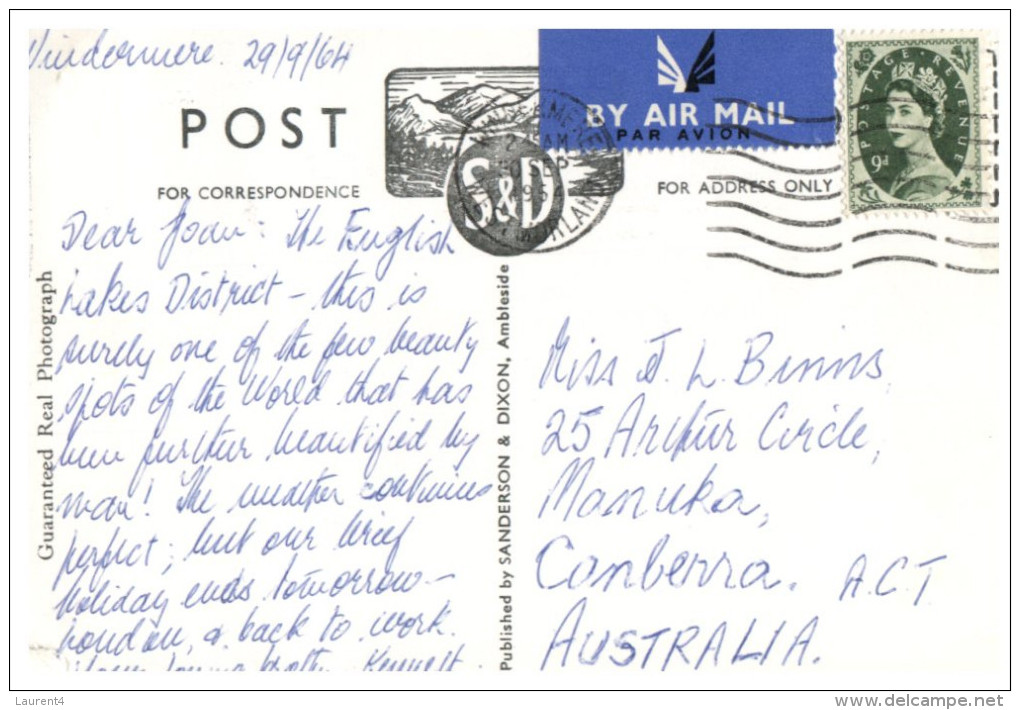 Windermere. 29/9/64
POST
FOR CORRESPONDENCE
S&D
BY AIR MAIL
PAR AVION
FOR ADDRESS ONLY
POSTAGE REVENUE
9d
Dear Joan: The English
Lakes District – this is
surely one of the few beauty
spots of the World that has
been further beautified by
man! The weather continues
perfect; but our brief
holiday ends tomorrow –
London, & back to work.
Kennett.
Guaranteed Real Photograph
Published by SANDERSON & DIXON, Ambleside
Miss J. L. Binns,
25 Arthur Circle,
Manuka,
Canberra. A.C.T
AUSTRALIA.
Laurent4
delcampe.net